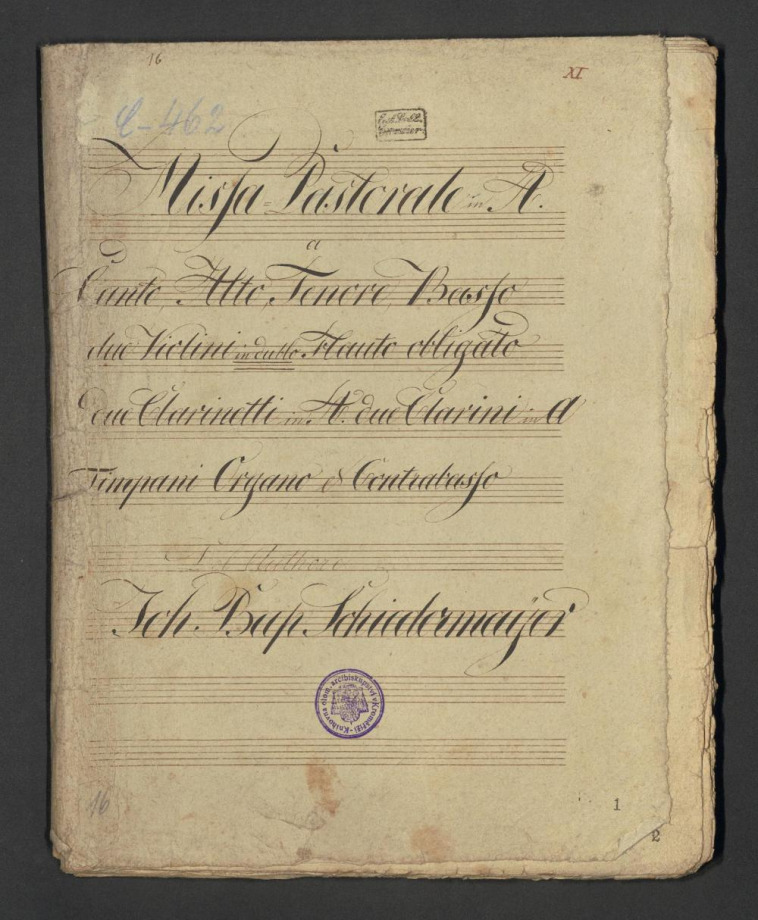 16
XI
C-462
Missa Pastorale in A.
a
Canto, Alto, Tenore, Basso
due Violini in dublo Flauto obligato
due Clarinetti in A. due Clarini in A
Timpani Organo & Contrabasso
Del Authore
Joh. Bap. Schiedermayer
Knihovna olom. arcibiskupství v Kroměříži
16
1
2